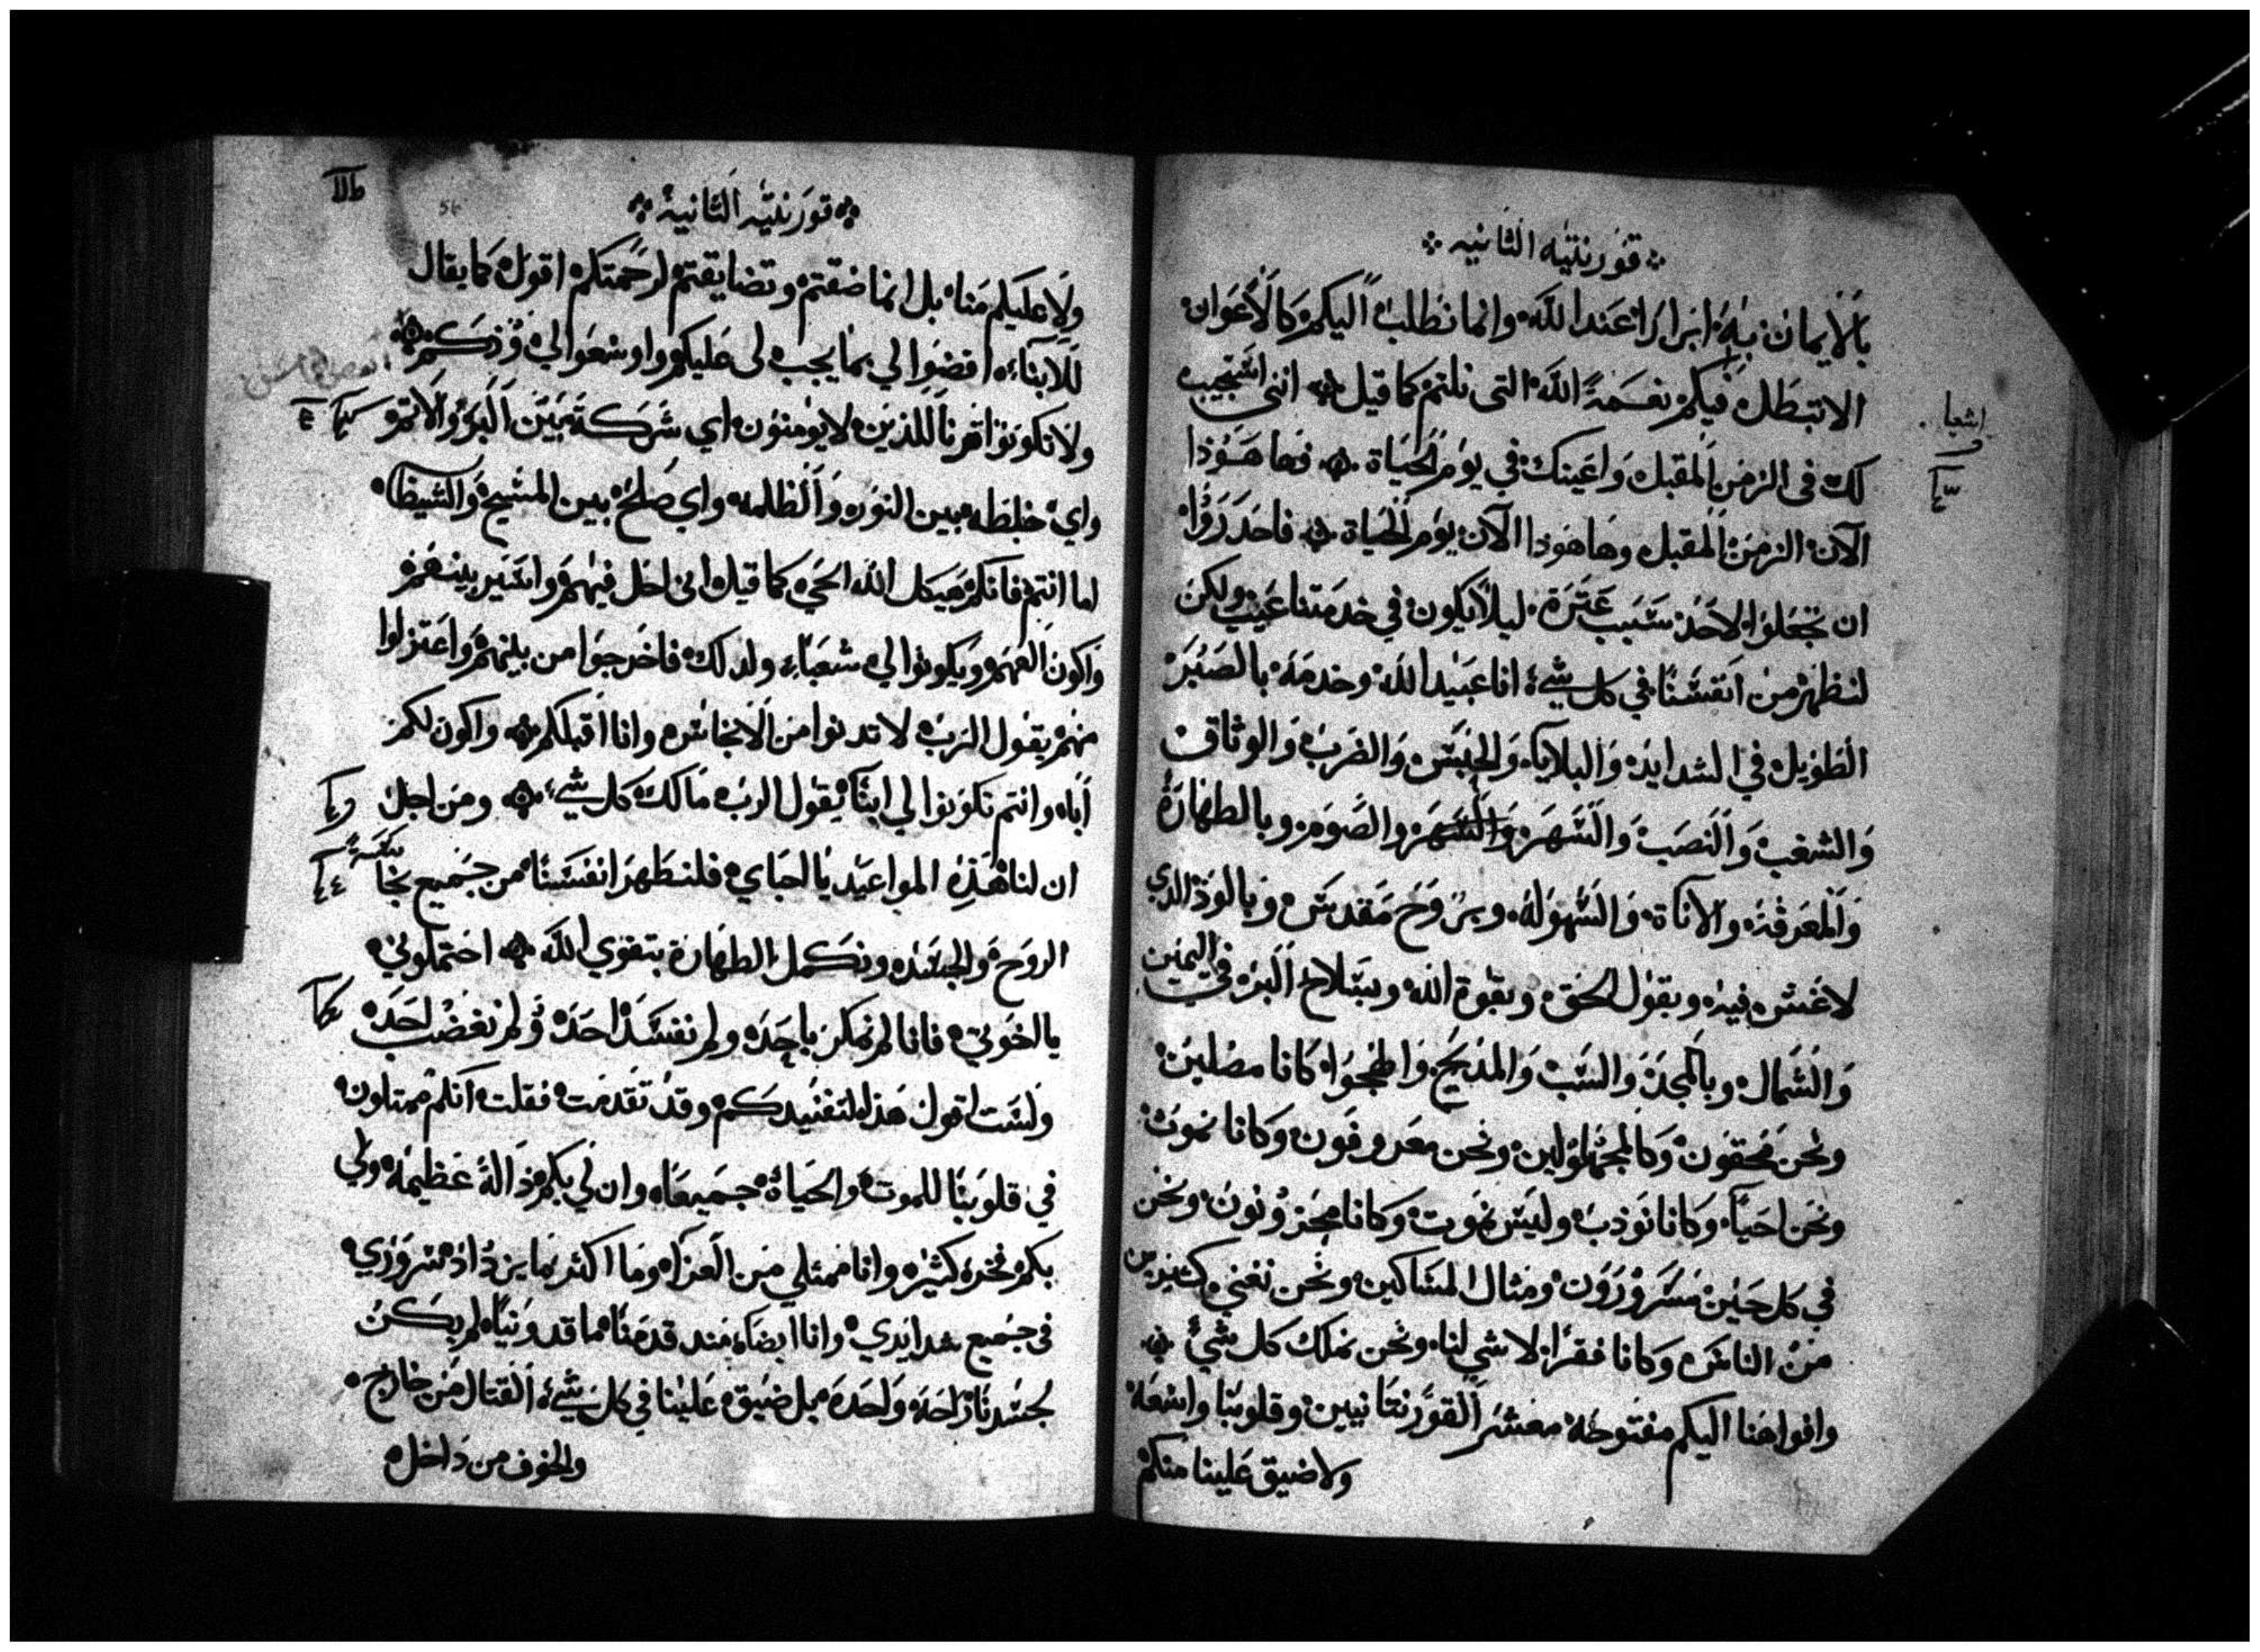 قورنتيه الثانيه
بالايمان به ابرارا عند الله وانما نطلب اليكم كالاعوان
الا تبطل فيكم نعمة الله التي نلتم كما قيل انني استجيب
اشعيا
لك في الزمن المقبل واعينك في يوم الحياة فها هوذا
الآن الزمن المقبل وها هوذا الآن يوم الحياة فاحدروا
ان تجعلوا لاحد سبب عترة ليلا يكون في خدمتنا عيب ولكن
لنظهر من انفسنا في كل شيء انا عبيد الله وخدمه بالصبر
الطويل في الشدايد والبلايا والحبس والضرب والوثاق
والشغب والنصب والسهر والصوم وبالطهارة
والمعرفة والاناة والسهولة وبروح مقدس وبالود الدي
لا غش فيه وبقول الحق وبقوة الله وبسلاح البر في اليمين
والشمال وبالمجد والسب والمديح والهجو كانا مضلين
ونحن محقون وكالمجهولين ونحن معروفون وكانا نموت
ونحن احيا وكانا نودب وليس نموت وكانا محزونون ونحن
في كل حين مسرورون ومثال المساكين ونحن نغني كتيرين
من الناس وكانا فقرا لا شي لنا ونحن نملك كل شيء
وافواهنا اليكم مفتوحة معشر القورنتانيين وقلوبنا واسعة
ولا ضيق علينا منكم
قورنتيه الثانية
56
ولا عليكم منا بل انما ضقتم وتضايقتم لرحمتكم اقول كما يقال
للابناء اقضوا لي بما يجب لي عليكم واوسعوا لي ودكم
ولا تكونوا قرنا للذين لا يومنون اي شركة بين البر والاتم
واي خلطه بين النور والظلمه واي صلح بين المسيح والشيطان
اما انتم فانكم هيكل الله الحي كما قيل اني احل فيهم واسير بينهم
واكون الههم ويكونوا لي شعبا ولدلك فاخرجوا من بينهم واعتزلوا
منهم يقول الرب لا تدنوا من الانجاس وانا اقبلكم واكون لكم
أبا وانتم تكونوا لي ابنآ يقول الرب مالك كل شيء ومن اجل
ان لنا هذه المواعيد يا احباي فلنطهر انفسنا من جميع نجا
الروح والجسد ونكمل الطهارة بتقوي الله احتملوني
يا اخوتي فانا لم نمكر باحد ولم نفسد احد ولم نغضب احد
ولست اقول هذا لتفنيدكم وقد تقدمت فقلت انكم ممتلون
في قلوبنا للموت والحياة جميعا وان لي بكم دالة عظيمة ولي
بكم فخر كثير وانا ممتلي من العزاء وما اكثر ما يزداد سروري
في جميع شدايدي وانا ايضا مند قدمنا ماقدونيا لم يكن
لجسدنا راحة واحدة بل ضيق علينا في كل شيء القتال من خارج
والخوف من داخل